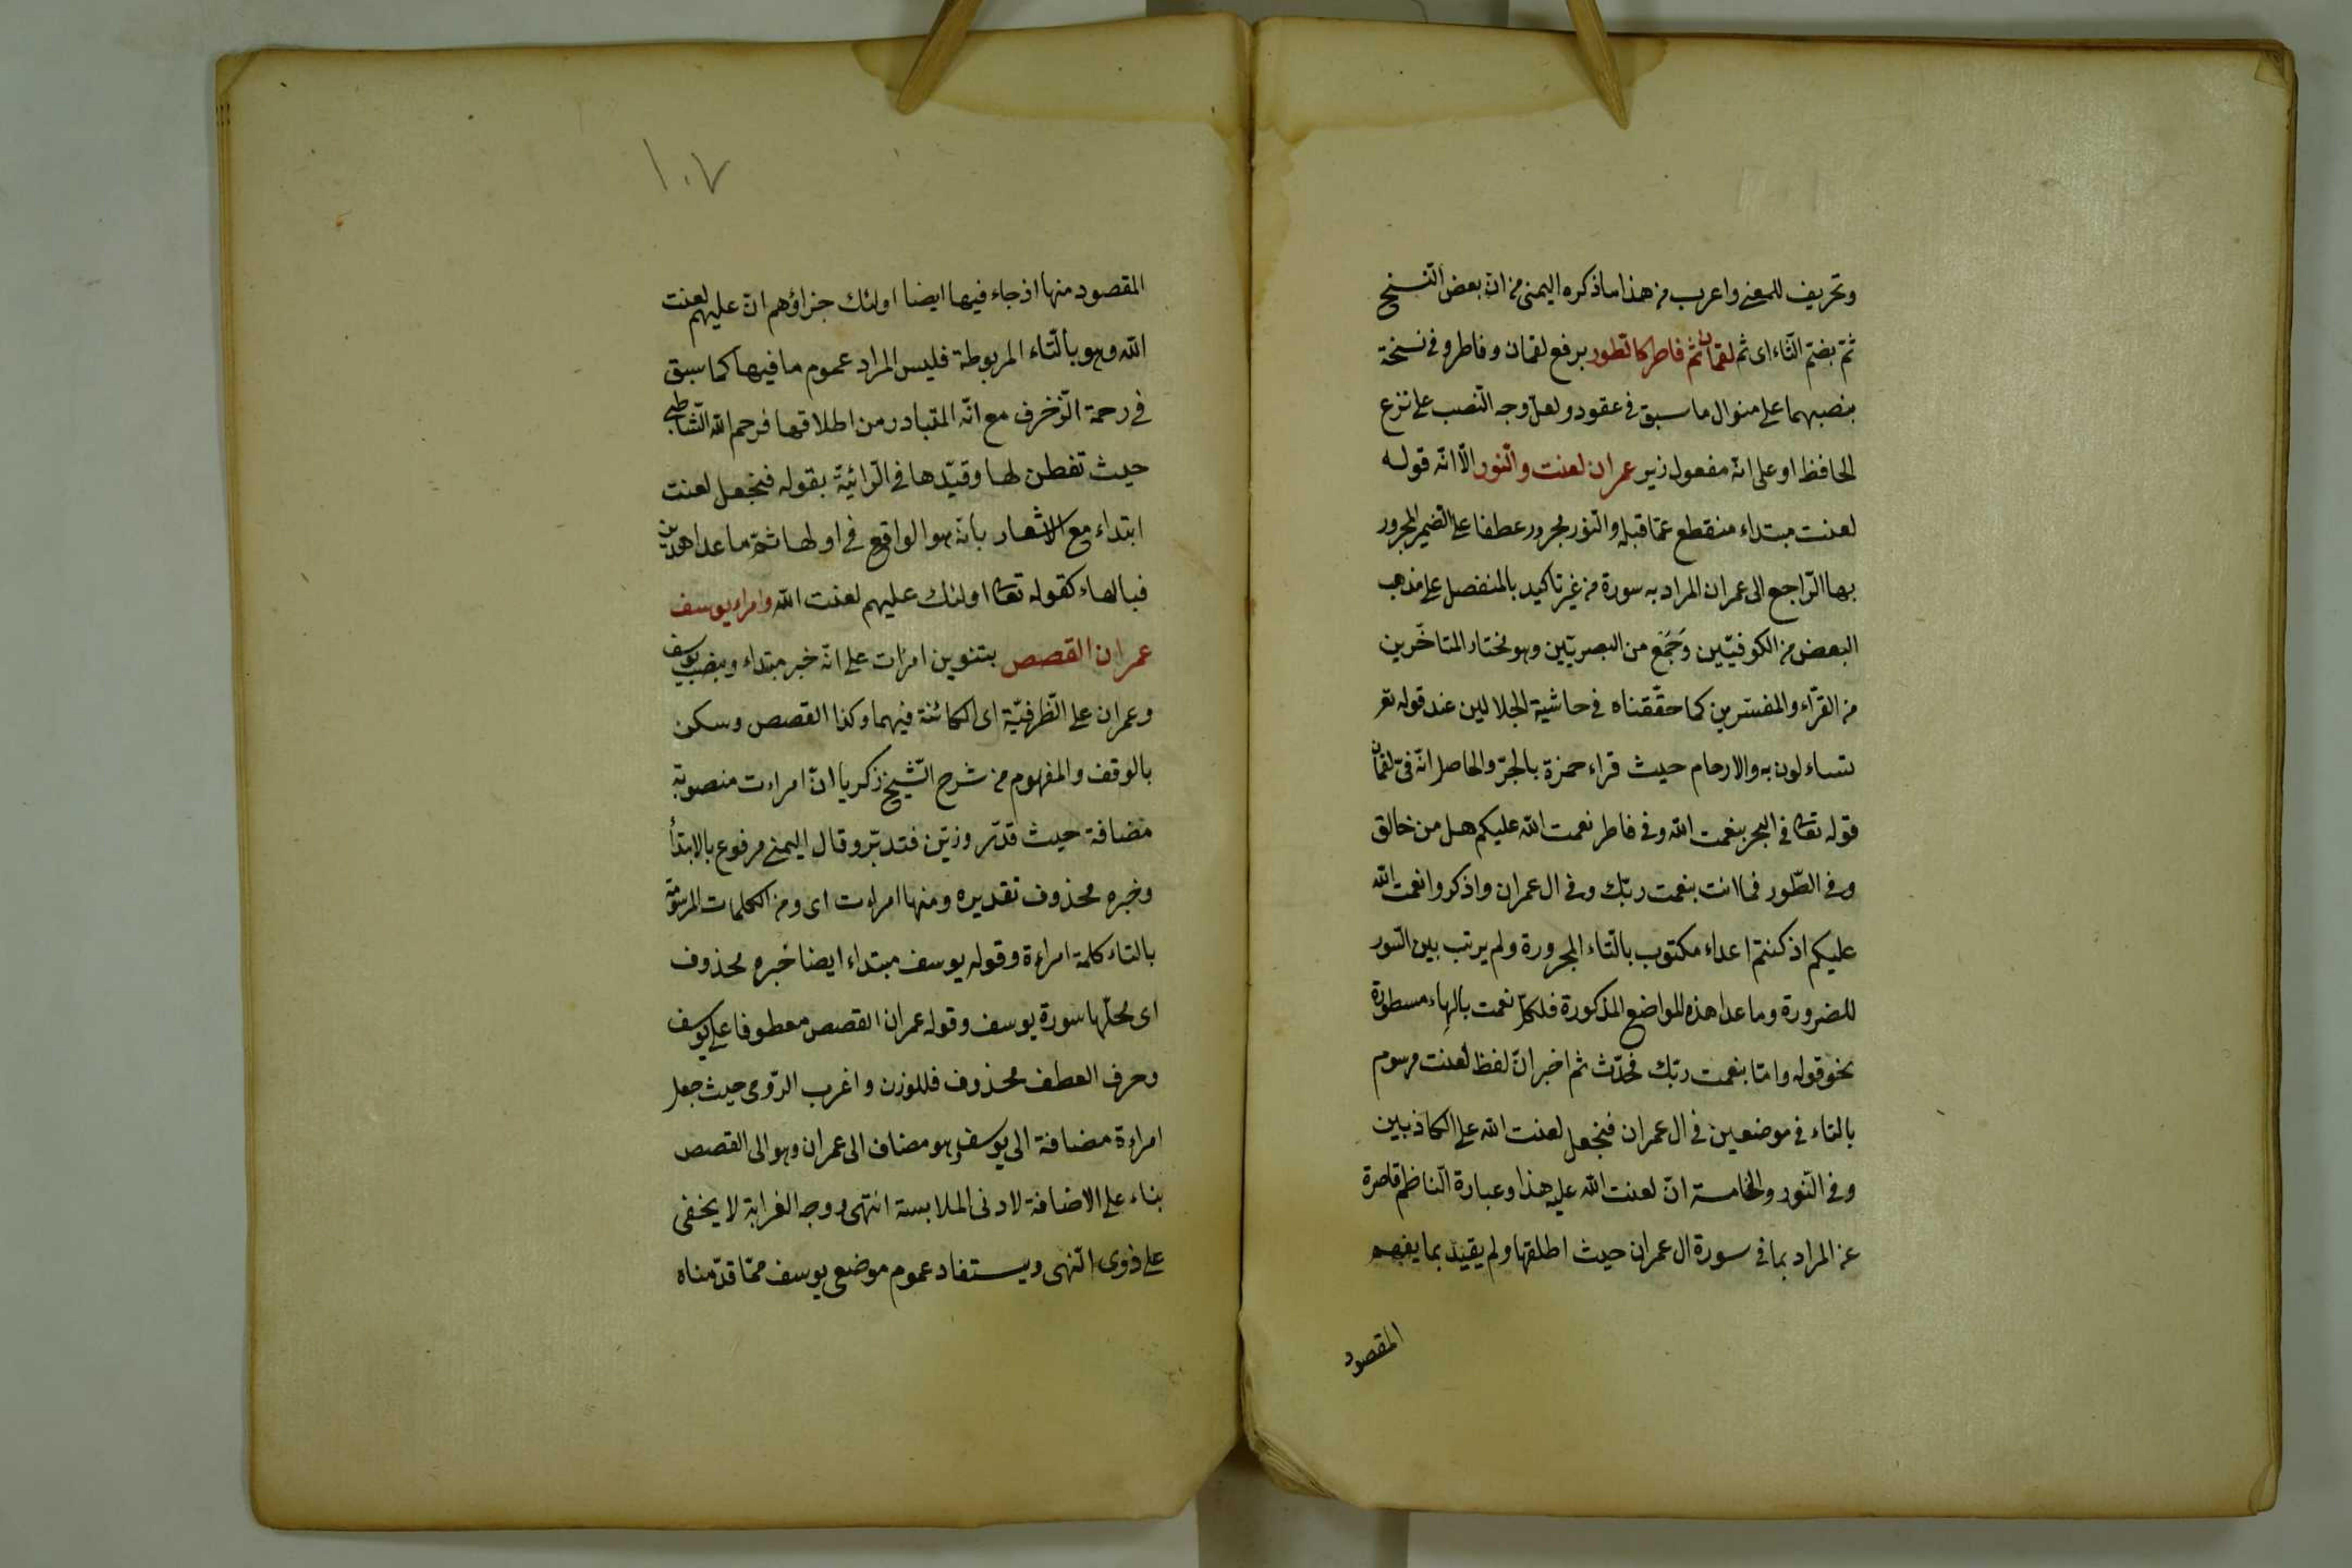 وتحريف للمعنى واعرب من هذا ما ذكره اليمنى من ان بعض النسخ
ثمّ بضمّ الثّاء اى ثم لقمان ثمّ فاطر كالطور برفع لقمان وفاطر وفى نسخة
بنصبهما على منوال ما سبق فى عقود ولعلّ وجه النّصب على نزع
الحافظ او على انّه مفعول زير عمران لعنت والنّور الّا انّه قوله
لعنت مبتداء منقطع عمّا قبله والنّور مجرور عطفا على الضّمير المجرور
بها الرّاجع الى عمران المراد به سورة من غير تاكيد بالمنفصل على مذهب
البعض من الكوفيّين وجَمْع من البصريّين وهو مختار المتاخّرين
من القرّاء والمفسّرين كما حقّقناه فى حاشية الجلالين عند قوله تعر
تساءلون به والارحام حيث قراء حمزة بالجرّ والحاصل انّه فى لقمان
قوله تعالى فى البحر بنعمت الله وفى فاطر نعمت الله عليكم هل من خالق
وفى الطّور فما انت بنعمت ربّك وفى ال عمران واذكروا نعمت الله
عليكم اذ كنتم اعداء مكتوب بالتّاء المجرورة ولم يرتب بين السّور
للضرورة وما عدا هذه المواضع المذكورة فلكلّ نعمت بالهاء مسطورة
نحو قوله وامّا بنعمت ربّك فحدّث ثم اخبر انّ لفظ لعنت مرسوم
بالتاء فى موضعين فى ال عمران فنجعل لعنت الله على الكاذبين
وفى النّور والخامسة انّ لعنت الله عليه هذا وعبارة النّاظم قاصرة
عن المراد بما فى سورة ال عمران حيث اطلقها ولم يقيّد بما يفهم
المقصود
١٠٧
المقصود منها اذ جاء فيها ايضا اولئك جزاؤهم انّ عليهم لعنت
الله وهو بالتّاء المربوطة فليس المراد عموم ما فيها كما سبق
فى رحمة الزّخرف مع انّه المتبادر من اطلاقها فرحم الله الشّاطبى
حيث تفطن لها وقيّدها فى الرّائيّة بقوله فنجعل لعنت
ابتداء مع الاشعار بانّه هو الواقع فى اولها ثمّ ما عدا هذين
فبالهاء كقوله تعالى اولئك عليهم لعنت الله وامراء يوسف
عمران القصص بتنوين امرات على انّه خبر مبتداء وبنصب يوسف
وعمران على الظّرفيّة اى الكائنة فيهما وكذا القصص وسكن
بالوقف والمفهوم من شرح الشّيخ زكريا انّ امراءت منصوبة
مضافة حيث قدّر وزيّن فتدبّر وقال اليمنى مرفوع بالابتدأ
وخبره محذوف تقديره ومنها امراءت اى ومن الكلمات المرسومة
بالتاء كلمة امراءة وقوله يوسف مبتداء ايضا خبره محذوف
اى محلّها سورة يوسف وقوله عمران القصص معطوفا على يوسف
وحرف العطف محذوف فللوزن واغرب الرّومى حيث جعل
امراءة مضافة الى يوسف وهو مضاف الى عمران وهو الى القصص
بناء على الاضافة لادنى الملابسة انتهى ووجه الغرابة لا يخفى
على ذوى النّهى ويستفاد عموم موضعى يوسف ممّا قدّمناه